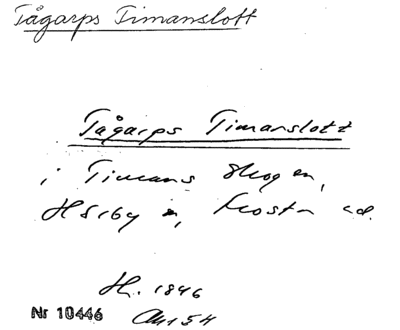 Tågarps Timanslott
Tågarps Timanslott
i Timans Skogen,
Hörby s, Frosta hd.
H. 1846
Nr 10446